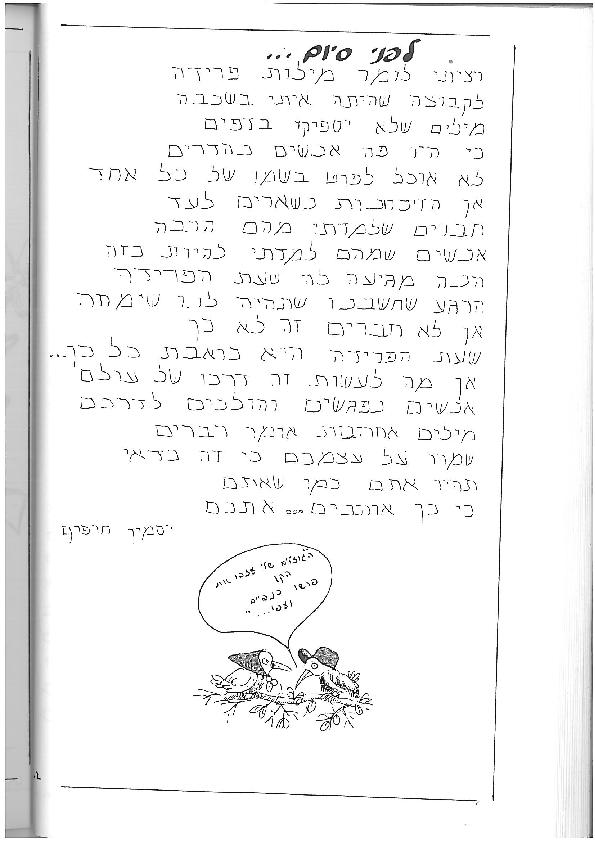 לפני סיום ...
רציתי לומר מילות פרידה
לקבוצה שהיתה איתי בשכבה
מילים שלא יספיקו בדפים
כי היו פה אנשים נהדרים
לא אוכל לפרט בשמו של כל אחד
אך הזיכרונות נשארים לעד
חברים שלמדתי מהם הרבה
אנשים שמהם למדתי להיות כזה
הנה מגיעה לה שעת הפרידה
הרגע שחשבנו שתהיה לנו שימחה
אך לא חברים זה לא כך
שעת הפרידה היא כואבת כל כך...
אך מה לעשות זה דרכו של עולם
אנשים נפגשים והולכים לדרכם
מילים אחרונות אומר חברים
שמרו על עצמכם כי זה כדאי
ותהיו אתם כמו שאתם
כי כך אוהבים... אתכם
הגוזלים שלי עזבו את
הקן
פרשו כנפיים
ועפו... "